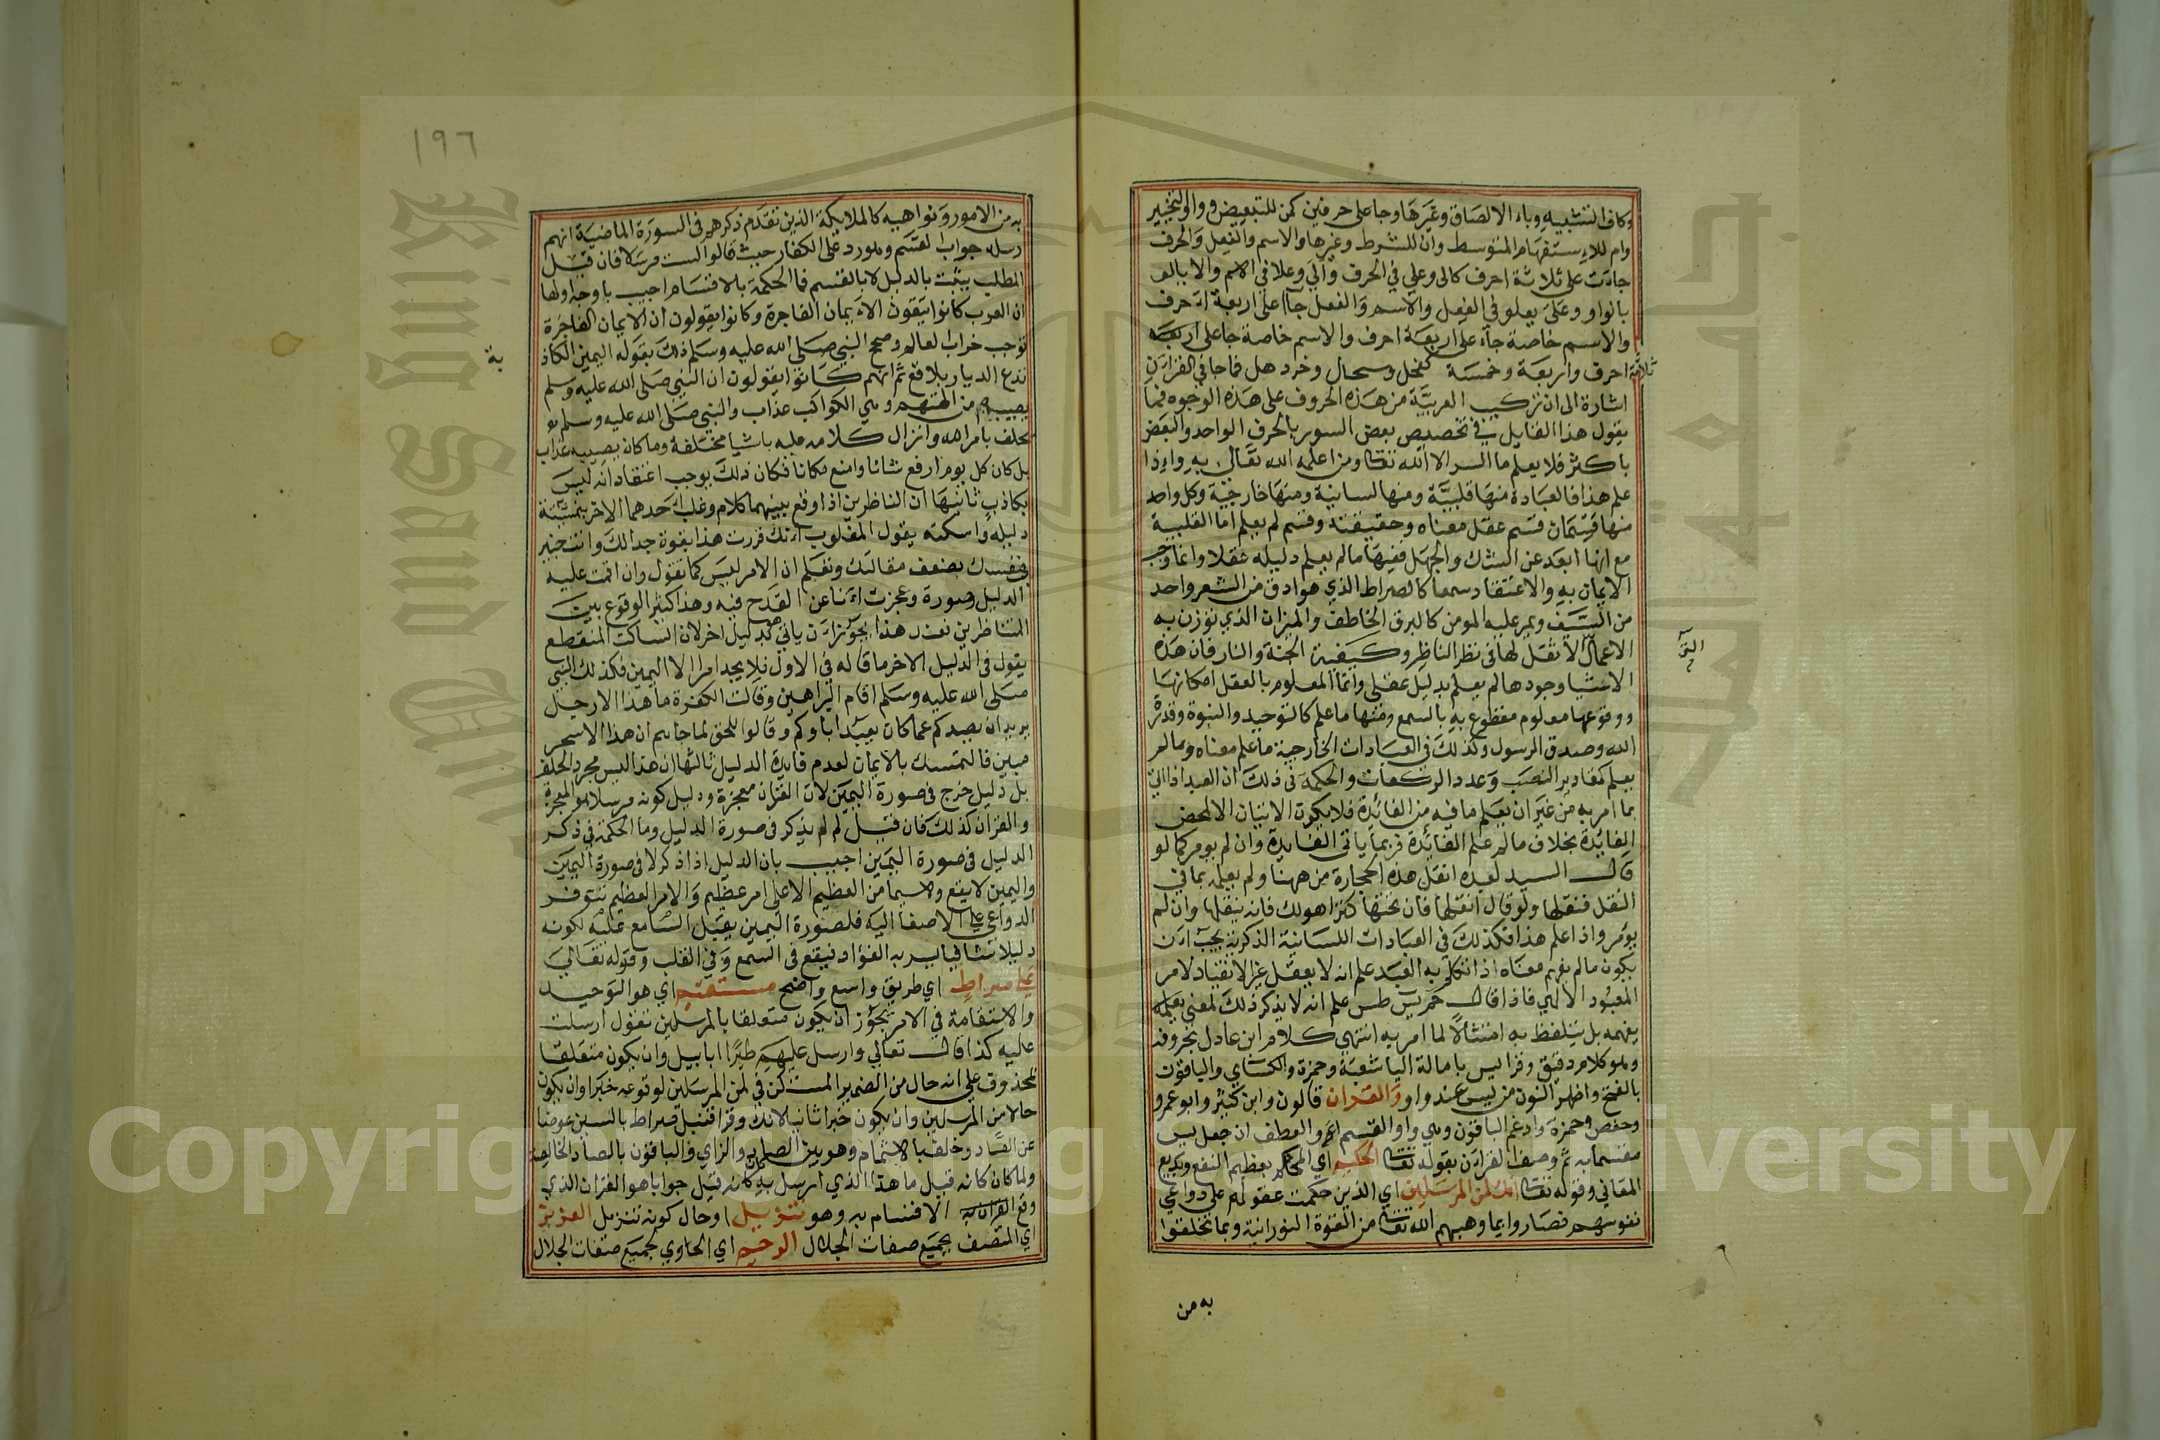 وكاف التشبيه وباء الالصاق وغيرها وجا على حرفين كمن للتبعيض وواو التخيير
وام للاستفهام المتوسط وان للشرط وغيرها والاسم والفعل والحرف
جاءت على ثلاثة احرف كالى وعلى في الحرف والى وعلا في الاسم والا يالو
بالواو وعلى يعلو في الفعل والاسم والفعل جاآ على اربعة احرف
والاسم خاصة جاء على اربعة احرف والاسم خاصة جا على اربعه
ثلاثة احرف واربعة وخمسة كفحل وسحال وخرد هل فما جا في القرآن
اشارة الى ان تركيب العربية من هذه الحروف على هذه الوجوه فما
يقول هذا القايل في تخصيص بعض السور بالحرف الواحد والبعض
باكثر فلا يعلم ما السر الا الله تعالى ومن اعلمه الله تعالى به واذا
علم هذا فالعبادة منها قلبية ومنها لسانية ومنها خارجية وكل واحد
منها قسمان قسم عقل معناه وحقيقته وقسم لم يعلم اما القلبية
مع انها ابعد عن الشك والجهل ففيها ما لم يعلم دليله عقلا وانما وجب
الايمان به والاعتقاد سمعا كالصراط الذي هو ادق من الشعر واحد
من السيف ويمر عليه المومن كالبرق الخاطف والميزان الذي توزن به
الاعمال الا ثقل لها في نظر الناظر وكيفية الجنة والنار فان هذه
الاشيا وجودها لم يعلم بدليل عقلي وانما المعلوم بالعقل امكانها
ووقوعها معلوم مقطوع به بالسمع ومنها ما علم كالتوحيد والنبوة وقدرة
الله وصدق الرسول وكذلك في العبادات الخارجية ما علم معناه وما لم
يعلم كمقادير النصب وعدد الركعات والحكمة في ذلك ان العبد اذا اتى
بما امر به من غير ان يعلم ما فيه من الفائدة فلا يكون الاتيان الا لمحض
الفائدة بخلاف ما لو علم الفائدة فربما ياتي الفايدة وان لم يومر كما لو
قال السيد لعبده انقل هذه الحجارة من ههنا ولم يعلمه بما في
النقل فنقلها ولو قال انقلها فان تحتها كنزا هو لك فانه ينقلها وان لم
يومر واذا علم هذا فكذلك في العبادات اللسانية الذكرية يجب ان
يكون ما لم يفهم معناه اذا تكلم به العبد علم انه لا يعقل غير الانقياد لامر
المعبود الالهي فاذا قال حم يس طس علم انه لا يذكر ذلك لمعنى يعلمه
يفهمه بل يتلفظ به امتثالا لما امر به انتهى كلام ابن عادل بحروفه
وهو كلام دقيق وقرا يس بامالة اليا شعبة وحمزة والكساي والباقون
بالفتح واظهر النون من يس عند واو والقران قالون وابن كثير وابو عمرو
وحفص وحمزة وادغم الباقون وهي واو القسم او والعطف ان جعل يس
مقسما به ثم وصف القرآن بقوله تعالى الحكيم اي المحكم بعظيم النفع وبديع
المعاني وقوله تعالى انك لمن المرسلين اي الذين حكمت عقولهم على دواعي
نفوسهم فصاروا بما وهبهم الله تعالى من القوة النورانية وبما تخلقوا
به من
١٩٦
به من الامور ونواهيه كالملايكة الذين تقدم ذكرهم في السورة الماضية انهم
رسله جواب لقسم وهو رد على الكفار حيث قالوا لست مرسلا فان قيل
المطلب يثبت بالدليل لا بالقسم فما الحكمة بالاقسام اجيب باوجه اولها
ان العرب كانوا يتقون الايمان الفاجرة وكانوا يقولون ان الايمان الفاجرة
توجب خراب العالم وصحح النبي صلى الله عليه وسلم ذلك بقوله اليمين الكاذ
بة
تدع الديار بلاقع ثم انهم كانوا يقولون ان النبي صلى الله عليه وسلم
يصيبه من الهتهم وهي الكواكب عذاب والنبي صلى الله عليه وسلم
يحلف بامر الله وانزال كلامه عليه باشيا مختلفة وما كان يصيبه عذاب
بل كان كل يوم ارفع شانا وامنع مكانا فكان ذلك يوجب اعتقاد انه ليس
بكاذب ثانيها ان الناظرين اذا وقع بينهما كلام وغلب احدهما الاخر بتمشية
دليله واسكته يقول المغلوب انك قررت هذا بقوة جدالك وانت خبير
في نفسك بضعف مقالتك وتعلم ان الامر ليس كما تقول وان اقمت عليه
الدليل صورة وعجزت انا عن القدح فيه وهذا كثير الوقوع بين
المتناظرين فعند هذا يجوز ان ياتي هو بدليل اخر لان الساكت المنقطع
يقول في الدليل الاخر ما قاله في الاول فلا يجد امرا الا اليمين فكذلك النبي
صلى الله عليه وسلم اقام البراهين وقالت الكفرة ما هذا الا رجل
يريد ان يصدكم عما كان يعبد اباؤكم وقالوا للحق لما جاهم ان هذا الا سحر
مبين فالتمسك بالايمان لعدم فايدة الدليل ثالثها ان هذا ليس مجرد الحلف
بل دليل خرج في صورة اليمين لان القران معجزة ودليل كونه مرسلا هو المعجزة
والقران كذلك فان قيل لم لم يذكر في صورة الدليل وما الحكمة في ذكر
الدليل في صورة اليمين اجيب بان الدليل اذا ذكر لا في صورة اليمين
واليمين لا يقع ولاسيما من العظيم الا على امر عظيم والامر العظيم تتوفر
الدواعي على الاصغا اليه فلصورة اليمين يقبل السامع عليه لكونه
دليلا شافيا يسر به الفؤاد فيقع في السمع وفي القلب وقوله تعالى
على صراط اي طريق واسع واضح مستقيم اي هو التوحيد
والاستقامة في الامر يجوز ان يكون متعلقا بالمرسلين تقول ارسلت
عليه كذا قال تعالى وارسل عليهم طيرا ابابيل وان يكون متعلقا
بمحذوف على انه حال من الضمير المستكن في لمن المرسلين لوقوعه خبرا وان يكون
حالا من المرسلين وان يكون خبرا ثانيا لانك وقرا قنبل صراط بالسين عوضا
عن الصاد وخلف بالاشمام وهو بين الصاد والزاي والباقون بالصاد الخالصة
ولما كان كانه قيل ما هذا الذي ارسل به كان قيل جوابا هو القران الذي
وقع القران به الاقسام به وهو تنزيل او حال كونه تنزيل العزيز
اي المتصف بجميع صفات الجلال الرحيم اي الحاوي لجميع صفات الجلال
Copyright © King Saud University
King Saud University
1957